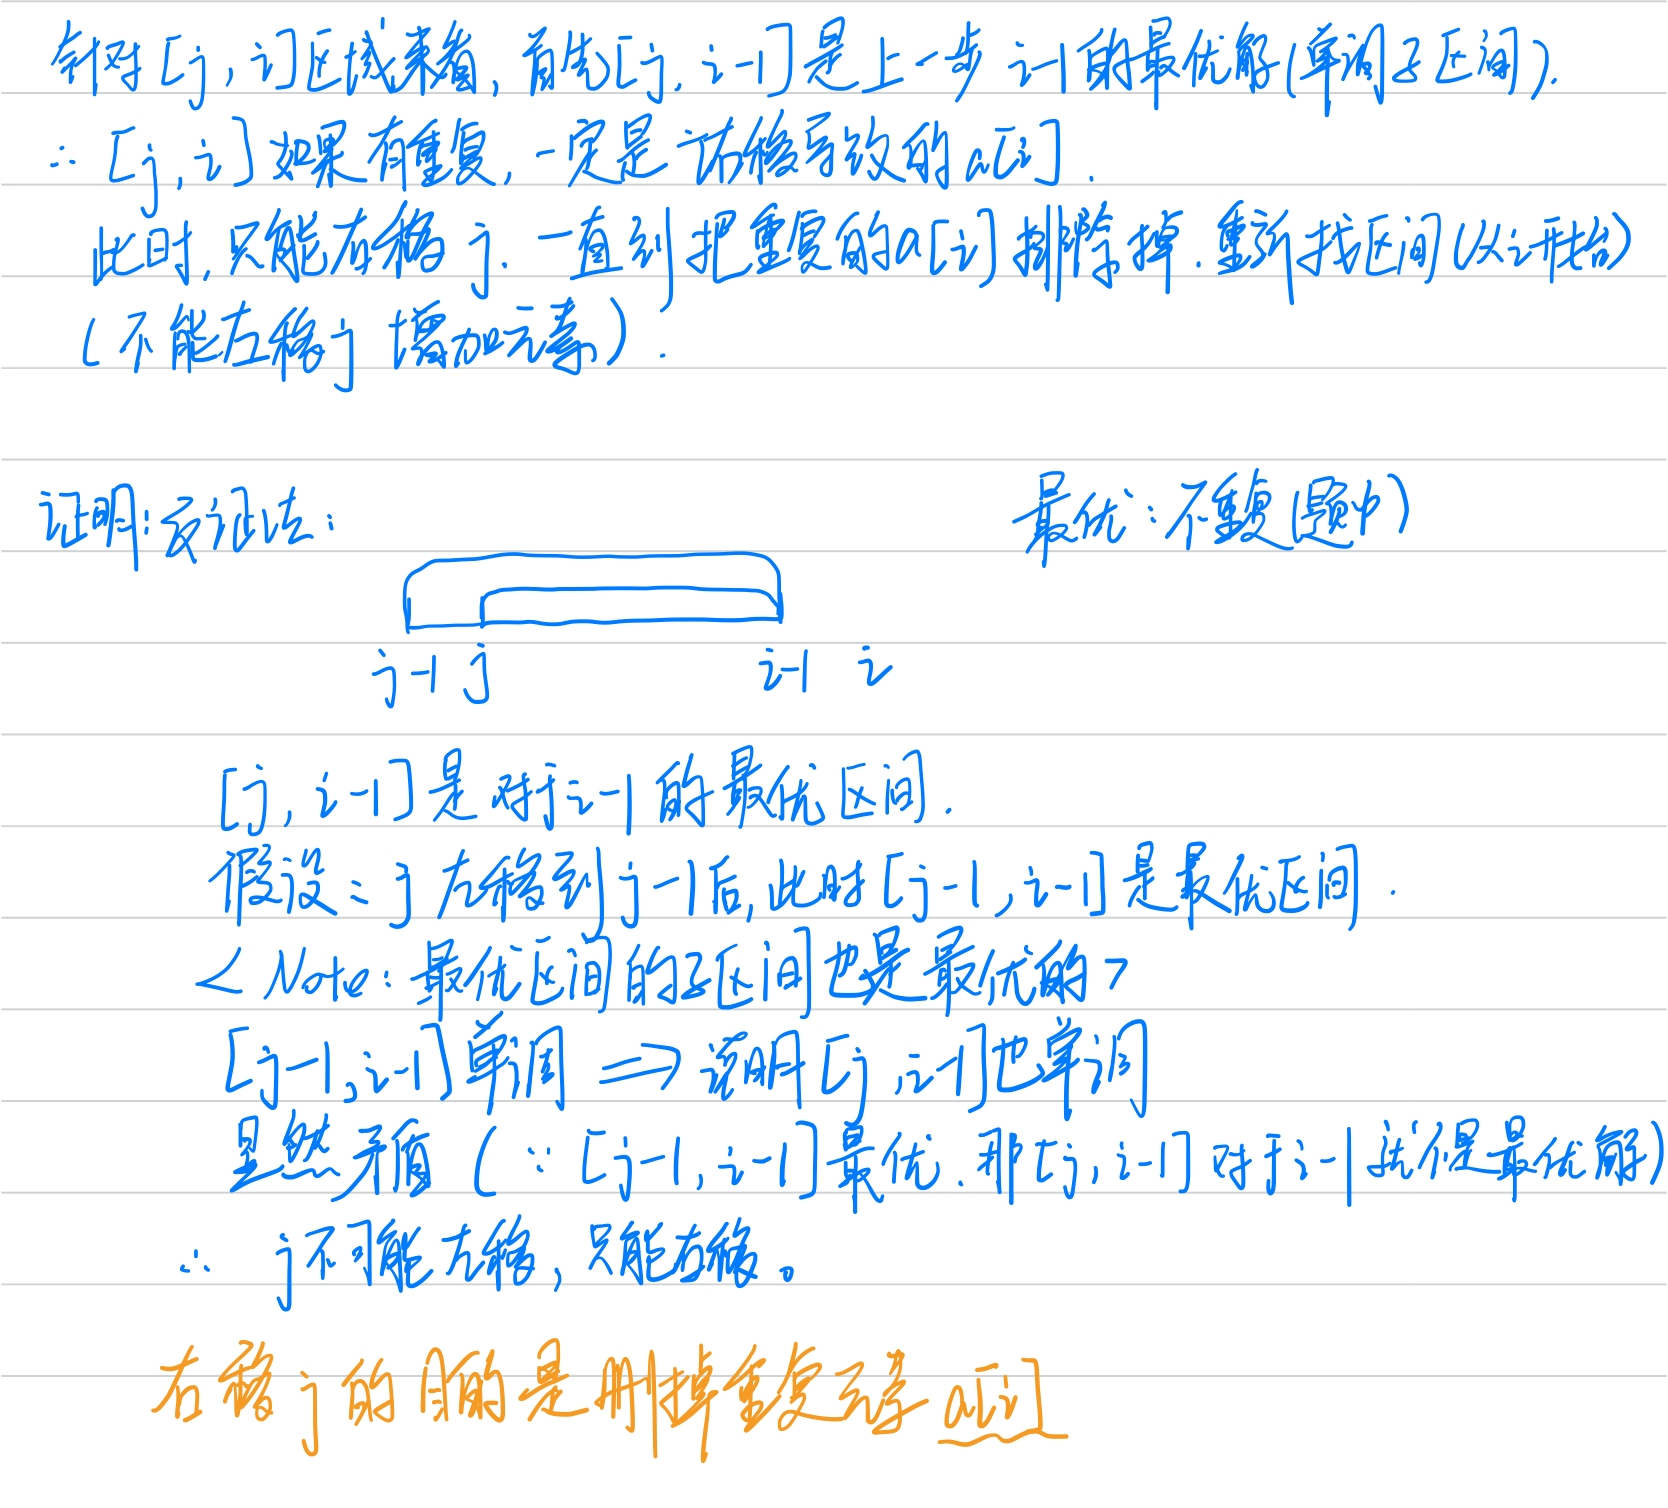 针对[j, i]区域来看, 首先[j, i-1]是上一步 i-1的最优解(单调子区间).
∴ [j, i]如果有重复, 一定是 i右移导致的a[i].
此时, 只能右移 j. 一直到把重复的a[i]排除掉. 重新找区间(从i开始)
(不能左移j 增加元素).
证明: 反证法:
最优: 不重复(题中)
j-1 j i-1 i
[j, i-1]是对于i-1的最优区间.
假设: j 左移到j-1后, 此时[j-1, i-1]是最优区间.
<Note: 最优区间的子区间也是最优的>
[j-1, i-1]单调 ⟹ 说明[j, i-1]也单调
显然矛盾 (∵ [j-1, i-1]最优. 那[j, i-1]对于i-1就不是最优解)
∴ j不可能左移, 只能右移。
右移j的目的是删掉重复元素a[i]